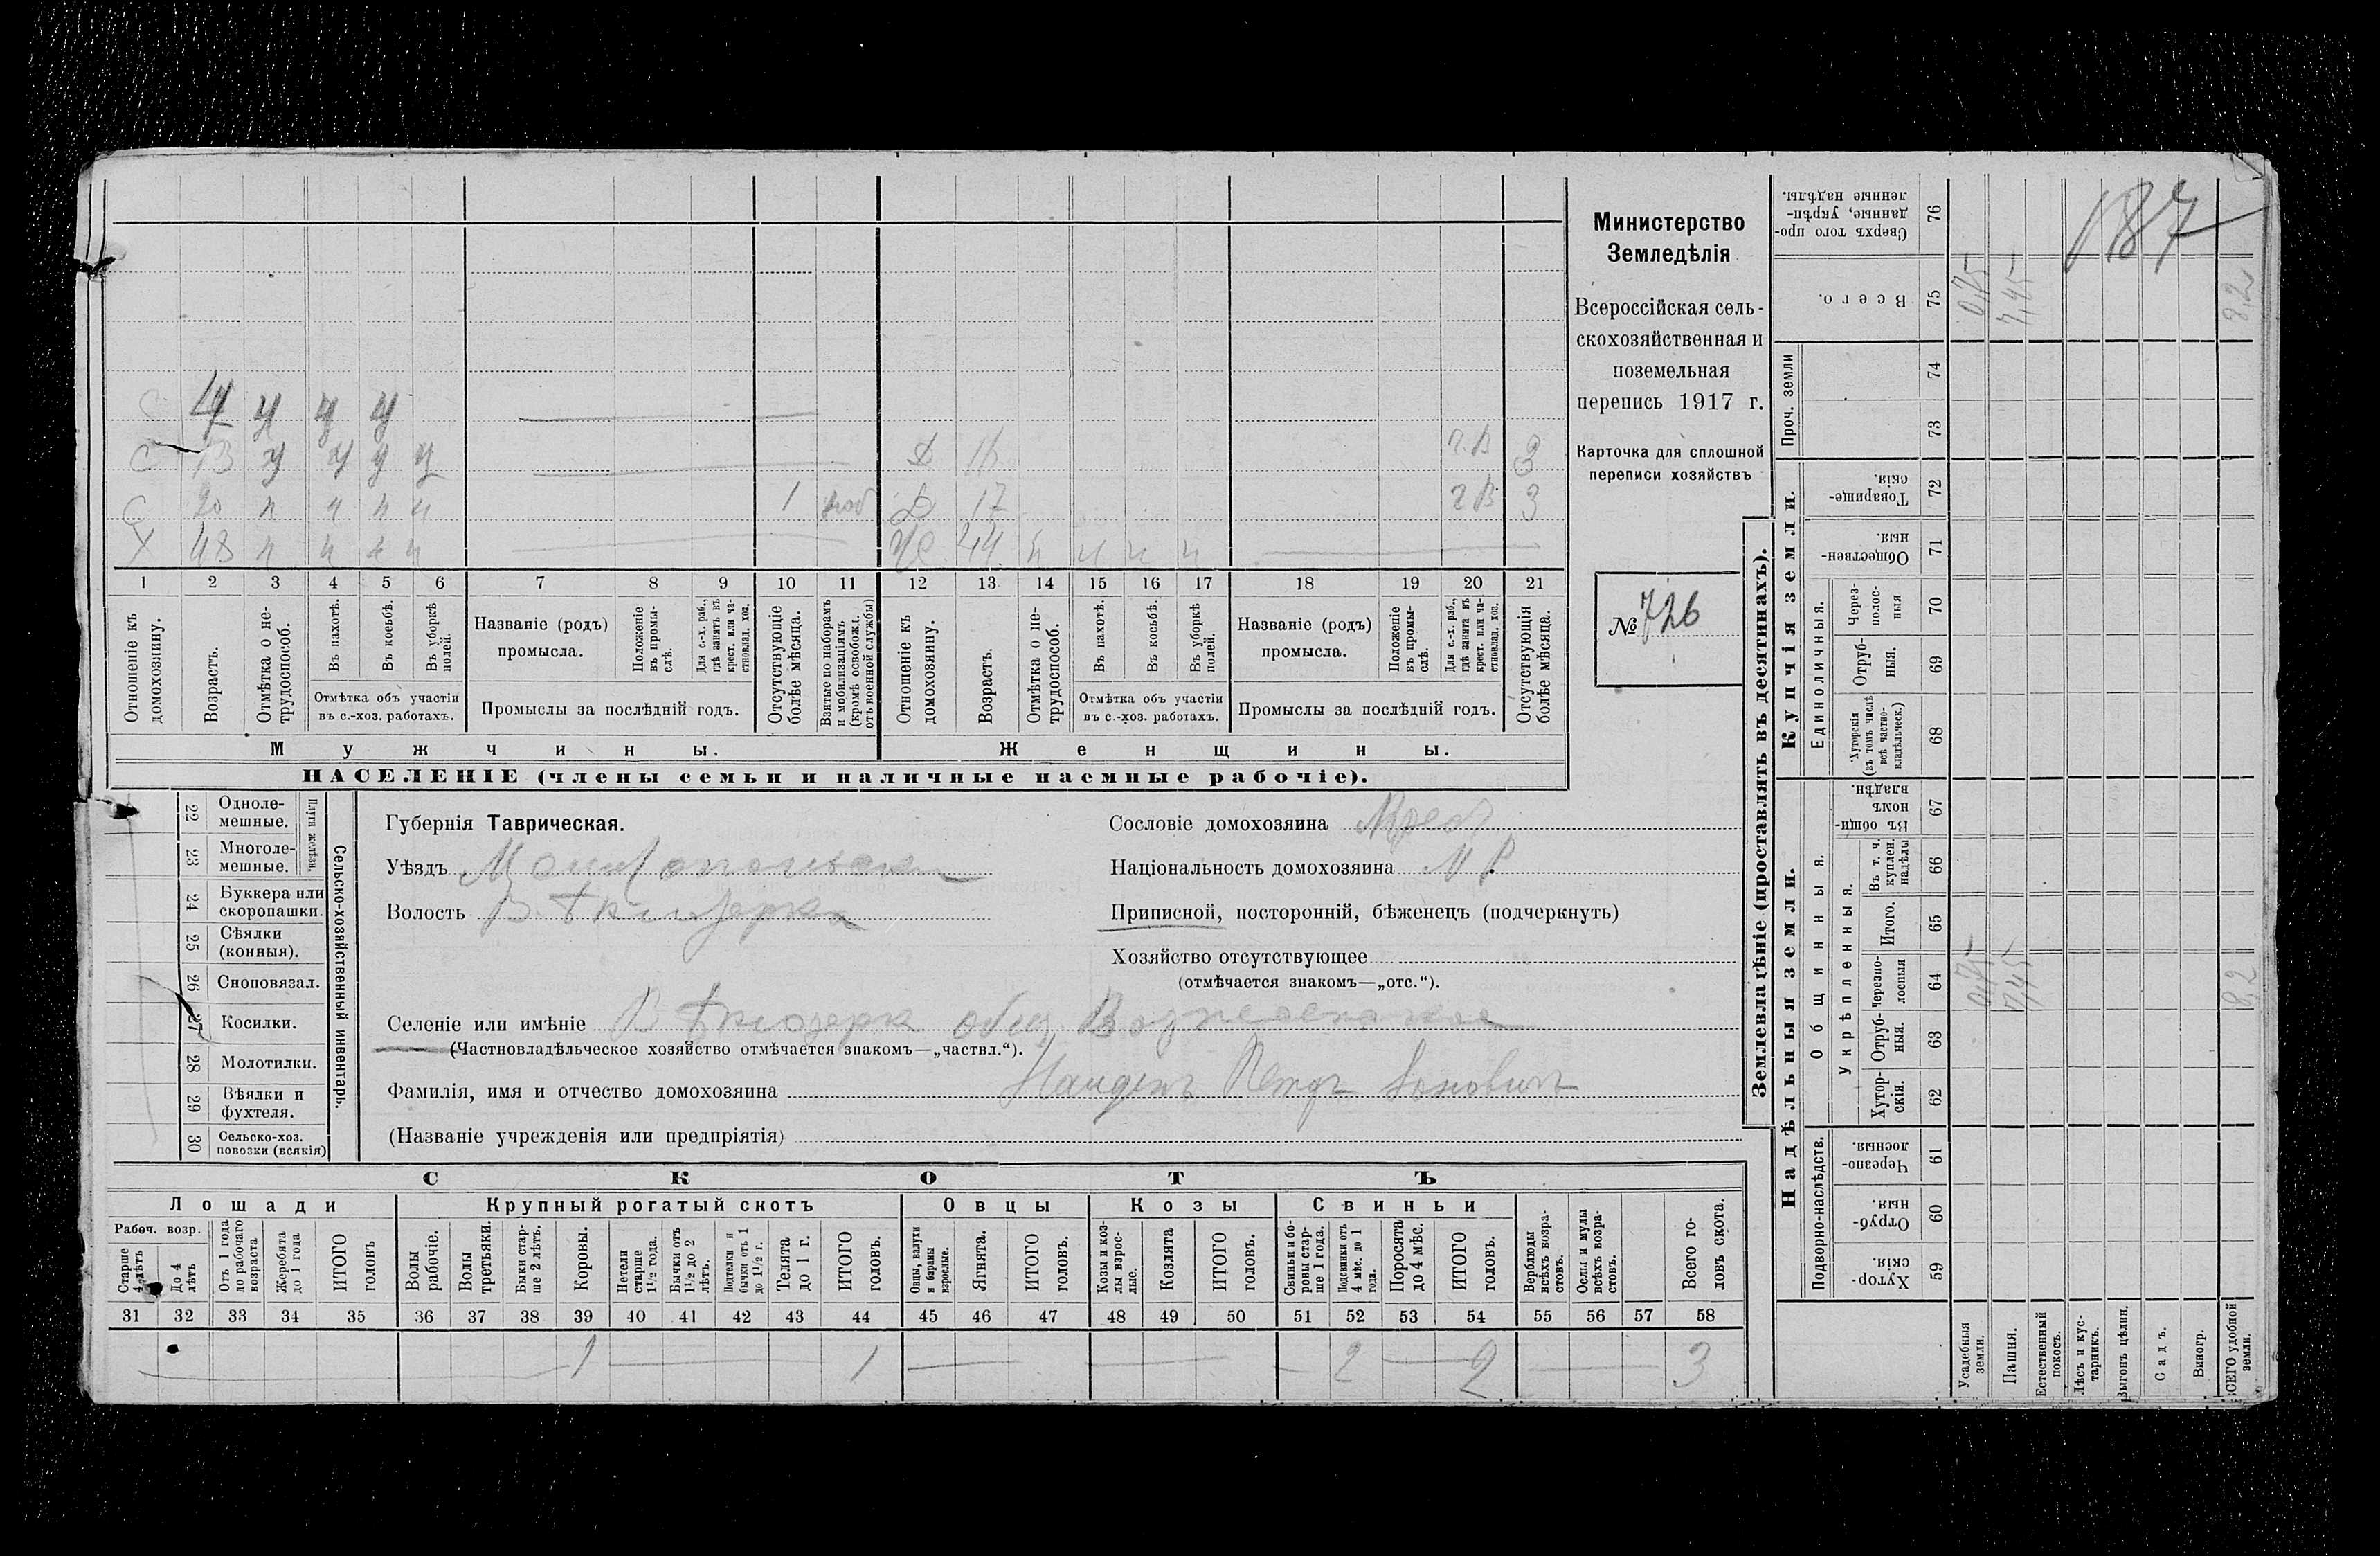 187
Министерство
Земледѣлія
Всероссійская сель-
скохозяйственная и
поземельная
перепись 1917 г.
Карточка для сплошной
переписи хозяйствъ
№ 726
С 4 у у у у
С 13 у у у у Д 1 г. В 3
С 20 п ч ч ч 1 моб Д 17 г В 3
Х 48 п ч ч ч Ж 44 п ч ч ч
1 2 3 4 5 6 7 8 9 10 11 12 13 14 15 16 17 18 19 20 21
Отношеніе къ домохозяину.
Возрастъ.
Отмѣтка о не-трудоспособ.
Въ пахотѣ.
Въ косьбѣ.
Въ уборкѣ полей.
Отмѣтка объ участіи
въ с.-хоз. работахъ.
Названіе (родъ)
промысла.
Положеніе въ промы-слѣ.
Для с.-х. раб., гдѣ занятъ въ крест. или ча-стновлад. хоз.
Промыслы за послѣдній годъ.
Отсутствующіе болѣе мѣсяца.
Взятые по наборамъ и мобилизаціямъ (кромѣ освобожд. отъ военной службы)
Отношеніе къ домохозяину.
Возрастъ.
Отмѣтка о не-трудоспособ.
Въ пахотѣ.
Въ косьбѣ.
Въ уборкѣ полей.
Отмѣтка объ участіи
въ с.-хоз. работахъ.
Названіе (родъ)
промысла.
Положеніе въ промы-слѣ.
Для с.-х. раб., гдѣ занята въ крест. или ча-стновлад. хоз.
Промыслы за послѣдній годъ.
Отсутствующія болѣе мѣсяца.
Мужчины. Женщины.
НАСЕЛЕНІЕ (члены семьи и наличные наемные рабочіе).
Сельско-хозяйственный инвентарь.
Плуги желѣзн.
22 Одноле-мешные.
23 Многоле-мешные.
24 Буккера или скоропашки.
25 Сѣялки (конныя).
26 Сноповязал.
27 Косилки.
28 Молотилки.
29 Вѣялки и фухтеля.
30 Сельско-хоз. повозки (всякія)
Губернія Таврическая.
Уѣздъ Мелитопольскій
Волость В. Бѣлозерка
Селеніе или имѣніе В Бѣлозерк общ Вознесенское
(Частновладѣльческое хозяйство отмѣчается знакомъ—„частвл.“).
Фамилія, имя и отчество домохозяина Найденъ Петръ
(Названіе учрежденія или предпріятія)
Сословіе домохозяина Крест
Національность домохозяина М Р
Приписной, посторонній, бѣженецъ (подчеркнуть)
Хозяйство отсутствующее
(отмѣчается знакомъ—„отс.“).
СКОТЪ
Лошади Крупный рогатый скотъ Овцы Козы Свиньи
Рабоч. возр.
Старше 4 лѣтъ
До 4 лѣтъ
Отъ 1 года до рабочаго возраста
Жеребята до 1 года
ИТОГО головъ
Волы рабочіе.
Волы третьяки.
Быки стар-ше 2 лѣтъ.
Коровы.
Нетели старше 1½ года.
Бычки отъ 1½ до 2 лѣтъ.
Подтелки и бычки отъ 1 до 1½ г.
Телята до 1 г.
ИТОГО головъ.
Овцы, валухи и бараны взрослые.
Ягнята.
ИТОГО головъ.
Козы и коз-лы взрос-лые.
Козлята
ИТОГО головъ.
Свиньи и бо-ровы стар-ше 1 года.
Подсвинки отъ 4 мѣс. до 1 года.
Поросята до 4 мѣс.
ИТОГО головъ.
Верблюды всѣхъ возра-стовъ.
Ослы и мулы всѣхъ возра-стовъ.
Всего го-ловъ скота.
31 32 33 34 35 36 37 38 39 40 41 42 43 44 45 46 47 48 49 50 51 52 53 54 55 56 57 58
1 1 2 2 3
Землевладѣніе (проставлять въ десятинахъ).
Надѣльныя земли. Купчія земли. Проч. земли
Подворно-наслѣдств. Общинныя. Единоличныя.
Укрѣпленныя.
59 Хутор-скія.
60 Отруб-ныя.
61 Черезпо-лосныя.
62 Хутор-скія.
63 Отруб-ныя.
64 Черезпо-лосныя
65 Итого.
66 Въ т. ч. куплен. надѣлы
67 Въ общин-номъ владѣн.
68 Хуторскія (въ томъ числѣ всѣ частно-владѣльческ.)
69 Отруб-ныя.
70 Через-полос-ныя
71 Обществен-ныя.
72 Товарище-скія.
73
74
75 Всего.
76 Сверхъ того про-данные, укрѣп-ленные надѣлы.
Усадебныя земли. 0,75 0,75
Пашня. 7,45 7,45
Естественный покосъ.
Лѣсъ и кус-тарникъ.
Выгонъ цѣлин.
Садъ.
Виногр.
ВСЕГО удобной земли. 8,2 8,2